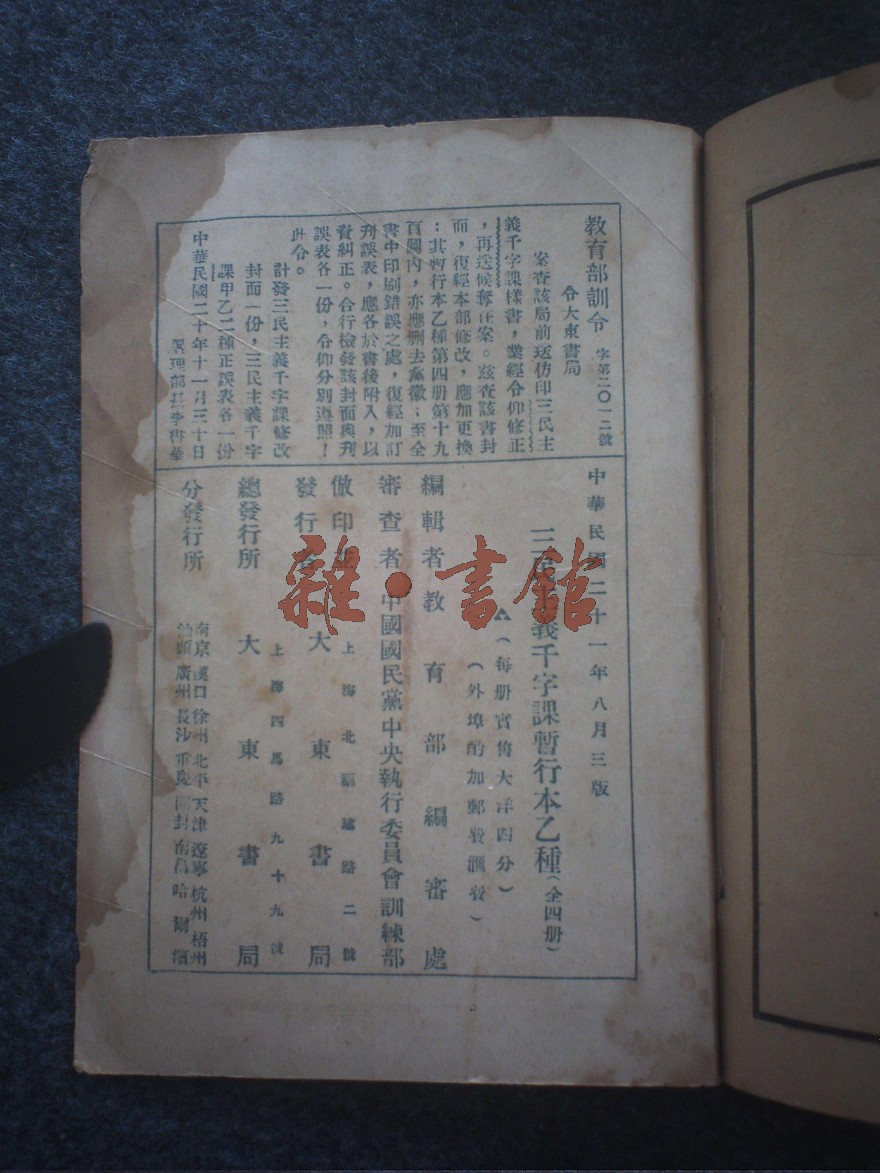 教育部訓令 字第二〇一二號
令大東書局
案查該局前送仿印三民主
義千字課樣書，業經令仰修正
，再送候奪在案。茲查該書封
面，復經本部修改，應加更換
；其暫行本乙種第四册第十九
頁圖內，亦應删去黨徽；至全
書中印刷錯誤之處，復經加訂
刋誤表，應各於書後附入，以
資糾正。合行檢發該封面與刋
誤表各一份，令仰分別遵照！
此令。
計發三民主義千字課修改
封面一份，三民主義千字
課甲乙二種正誤表各一份
中華民國二十年十一月三十日
署理部長李書華
中華民國二十一年八月三版
三民主義千字課暫行本乙種（全四册）
（每册實售大洋四分）
（外埠酌加郵費滙費）
編輯者 教育部編審處
審查者 中國國民黨中央執行委員會訓練部
上海北福建路二號
倣印兼
發行者 大東書局
上海四馬路九十九號
總發行所 大東書局
分發行所 南京 漢口 徐州 北平 天津 遼寧 杭州 梧州
汕頭 廣州 長沙 重慶 開封 南昌 哈爾濱
雜·書館